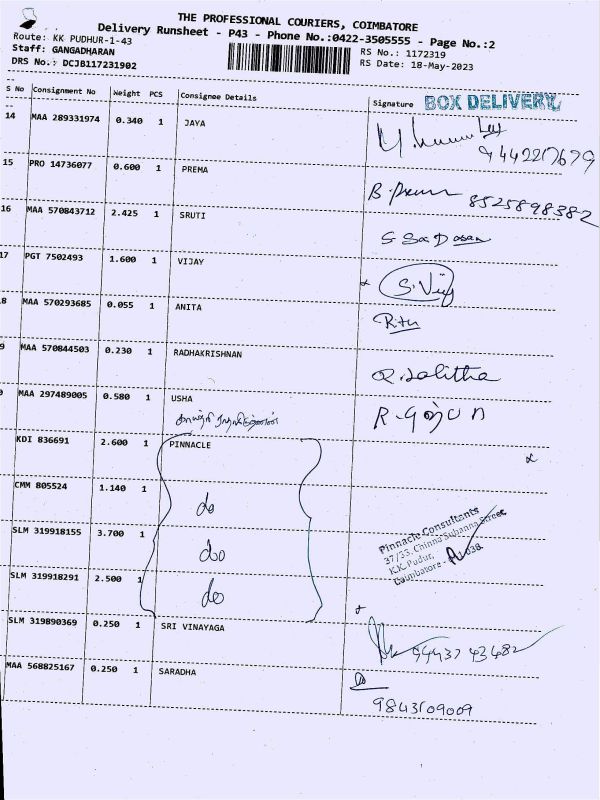 THE PROFESSIONAL COURIERS, COIMBATORE
Delivery Runsheet - P43 - Phone No.:0422-3505555 - Page No.:2
Route: KK PUDHUR-1-43
Staff: GANGADHARAN
DRS No.: DCJB117231902
RS No.: 1172319
RS Date: 18-May-2023
S No Consignment No Weight PCS Consignee Details Signature BOX DELIVERY
14 MAA 289331974 0.340 1 JAYA
9442217679
15 PRO 14736077 0.600 1 PREMA B. Prema 8525898382
16 MAA 570843712 2.425 1 SRUTI
17 PGT 7502493 1.600 1 VIJAY S. Vijay
8 MAA 570293685 0.055 1 ANITA Ritu
9 MAA 570844503 0.230 1 RADHAKRISHNAN R. Lalitha
0 MAA 297489005 0.580 1 USHA
KDI 836691 2.600 1 PINNACLE
CMM 805524 1.140 1 do
SLM 319918155 3.700 1 do
SLM 319918291 2.500 1 do
Pinnacle Consultants
37/33, Chinna Subanna Street
K.K. Pudur,
Coimbatore - 038.
SLM 319890369 0.250 1 SRI VINAYAGA 9443743482
MAA 568825167 0.250 1 SARADHA
9843109009